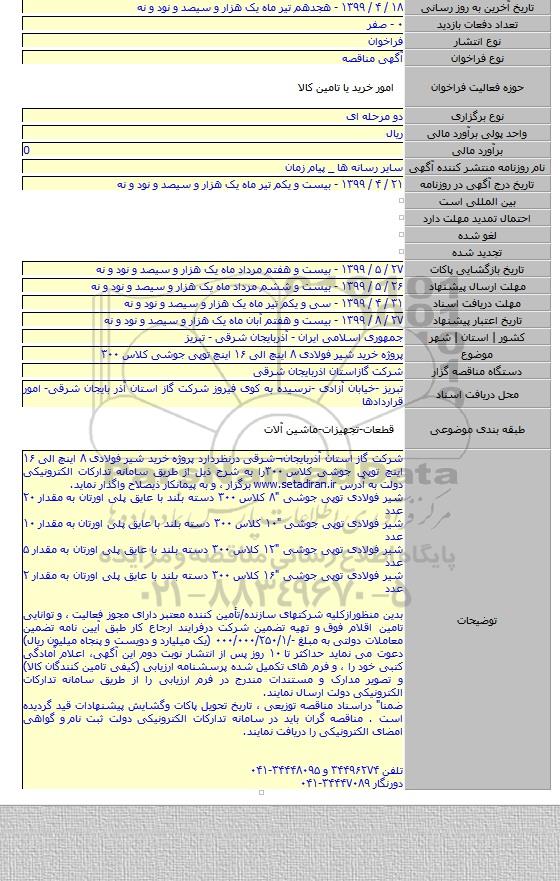 تاریخ آخرین به روز رسانی ۱۸ / ۴ / ۱۳۹۹ - هجدهم تیر ماه یک هزار و سیصد و نود و نه
تعداد دفعات بازدید ۰ - صفر
نوع انتشار فراخوان
نوع فراخوان آگهی مناقصه
حوزه فعالیت فراخوان امور خرید یا تامین کالا
نوع برگزاری دو مرحله ای
واحد پولی برآورد مالی ریال
برآورد مالی 0
نام روزنامه منتشر کننده آگهی سایر رسانه ها _ پیام زمان
تاریخ درج آگهی در روزنامه ۲۱ / ۴ / ۱۳۹۹ - بیست و یکم تیر ماه یک هزار و سیصد و نود و نه
بین المللی است
احتمال تمدید مهلت دارد
لغو شده
تجدید شده
تاریخ بازگشایی پاکات ۲۷ / ۵ / ۱۳۹۹ - بیست و هفتم مرداد ماه یک هزار و سیصد و نود و نه
مهلت ارسال پیشنهاد ۲۶ / ۵ / ۱۳۹۹ - بیست و ششم مرداد ماه یک هزار و سیصد و نود و نه
مهلت دریافت اسناد ۳۱ / ۴ / ۱۳۹۹ - سی و یکم تیر ماه یک هزار و سیصد و نود و نه
تاریخ اعتبار پیشنهاد ۲۷ / ۸ / ۱۳۹۹ - بیست و هفتم آبان ماه یک هزار و سیصد و نود و نه
کشور | استان | شهر جمهوری اسلامی ایران - آذربایجان شرقی - تبریز
موضوع پروژه خرید شیر فولادی ۸ اینچ الی ۱۶ اینچ توپی جوشی کلاس ۳۰۰
دستگاه مناقصه گزار شرکت گازاستان اذربایجان شرقی
محل دریافت اسناد تبریز -خیابان آزادی -نرسیده به کوی فیروز شرکت گاز استان آذر بایجان شرقی- امور
قراردادها
طبقه بندی موضوعی قطعات-تجهیزات-ماشین آلات
توضیحات
شرکت گاز استان آذربایجان¬شرقی درنظردارد پروژه خرید شیر فولادی ۸ اینچ الی ۱۶
اینچ توپی جوشی کلاس ۳۰۰را به شرح ذیل از طریق سامانه تدارکات الکترونیکی
دولت به آدرس www.setadiran.ir برگزار ، و به پیمانکار ذیصلاح واگذار نماید.
شیر فولادی توپی جوشی "۸ کلاس ۳۰۰ دسته بلند با عایق پلی اورتان به مقدار ۲۰
عدد
شیر فولادی توپی جوشی "۱۰ کلاس ۳۰۰ دسته بلند با عایق پلی اورتان به مقدار ۱۰
عدد
شیر فولادی توپی جوشی "۱۲ کلاس ۳۰۰ دسته بلند با عایق پلی اورتان به مقدار ۵
عدد
شیر فولادی توپی جوشی "۱۶ کلاس ۳۰۰ دسته بلند با عایق پلی اورتان به مقدار ۲
عدد
بدین منظورازکلیه شرکتهای سازنده/تأمین کننده معتبر دارای مجوز فعالیت ، و توانایی
تامین اقلام فوق و تهیه تضمین شرکت درفرایند ارجاع کار طبق آیین نامه تضمین
معاملات دولتی به مبلغ -/۰۰۰/۰۰۰/۲۵۰/۱ (یک میلیارد و دویست و پنجاه میلیون ریال)
دعوت می نماید حداکثر تا ۱۰ روز پس از انتشار نوبت دوم این آگهی، اعلام آمادگی
کتبی خود را ، و فرم های تکمیل شده پرسشنامه ارزیابی (کیفی تامین کنندگان کالا)
و تصویر مدارک و مستندات مندرج در فرم ارزیابی را از طریق سامانه تدارکات
الکترونیکی دولت ارسال نمایند.
ضمنا" دراسناد مناقصه توزیعی ، تاریخ تحویل پاکات وگشایش پیشنهادات قید گردیده
است . مناقصه گران باید در سامانه تدارکات الکترونیکی دولت ثبت نام و گواهی
امضای الکترونیکی را دریافت نمایند.
تلفن ۳۴۴۹۶۲۷۴ و ۳۴۴۴۸۰۹۵-۰۴۱
دورنگار ۳۴۴۴۷۰۸۹-۰۴۱
پایگاه اطلاع رسانی مناقصه و مزایده
۰۲۱-۸۸۳۴۹۶۷۰-۵